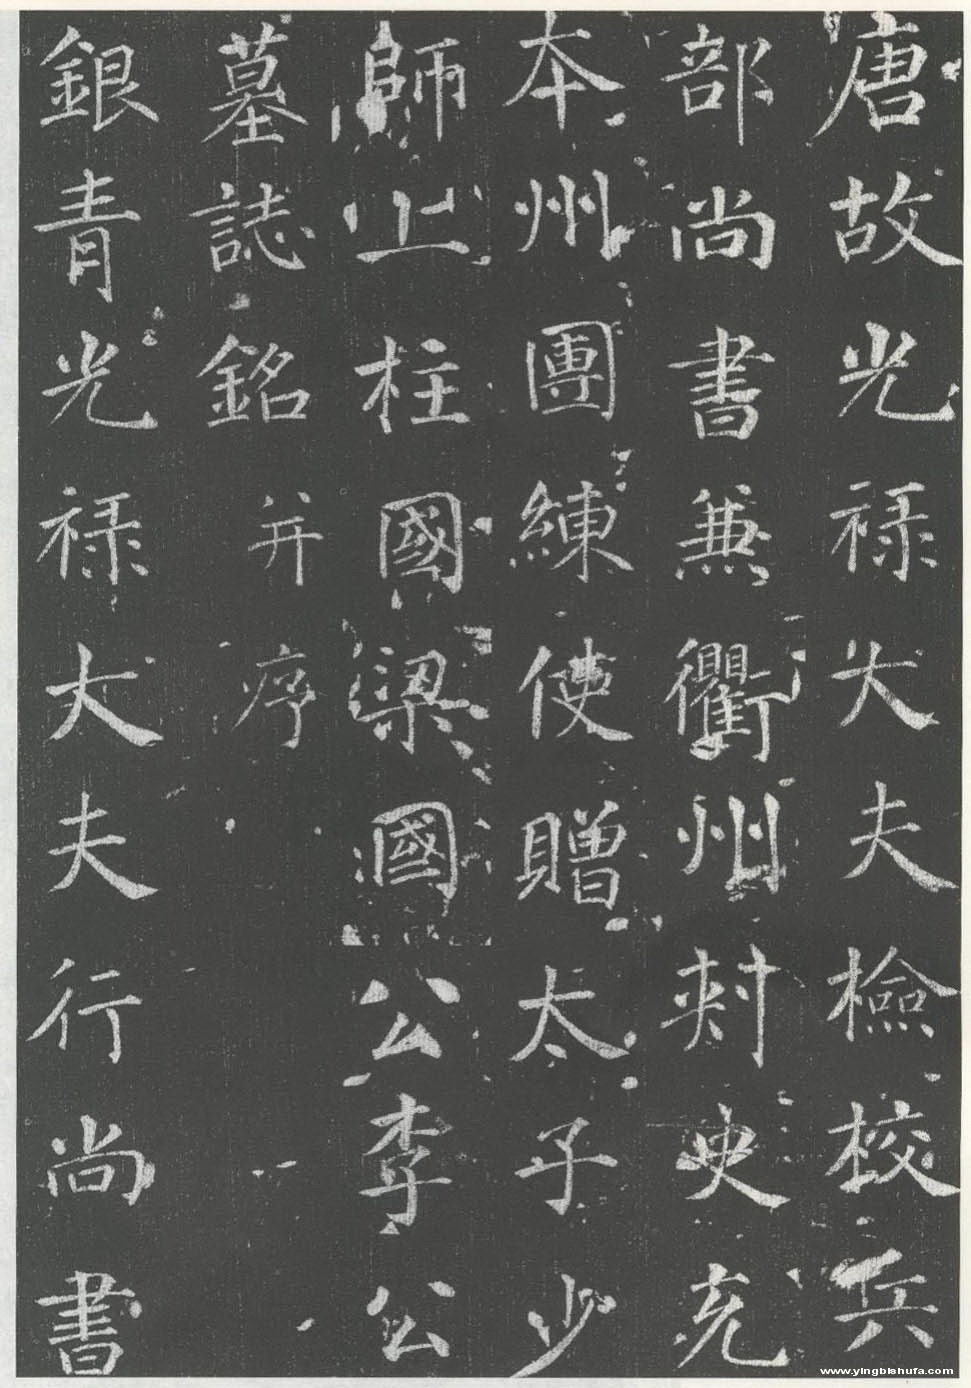 唐故光禄大夫檢校兵
部尚書兼衢州刺史充
本州團練使贈太子少
師上柱國梁國公李公
墓誌銘并序
銀青光禄大夫行尚書
www.yingbishufa.com